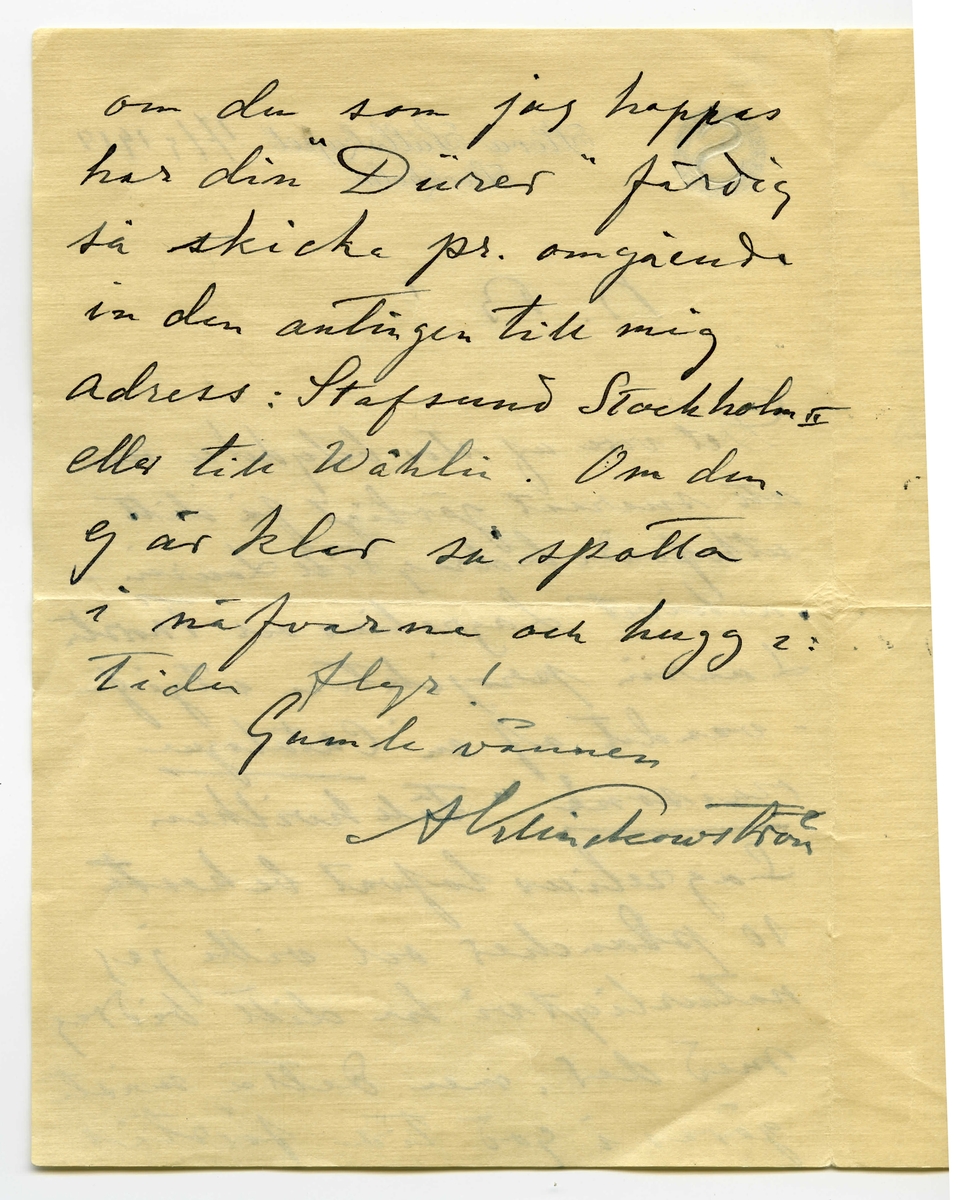 om du som jag hoppas
har din "Dürer" färdig
så skicka pr. omgående
in den antingen till mig
adress: Stafsund Stockholm II
eller till Wåhlin. Om den
ej är klar så spotta
i näfvarne och hugg i:
tiden flyr!
Gamle vännen
A Klinckowström